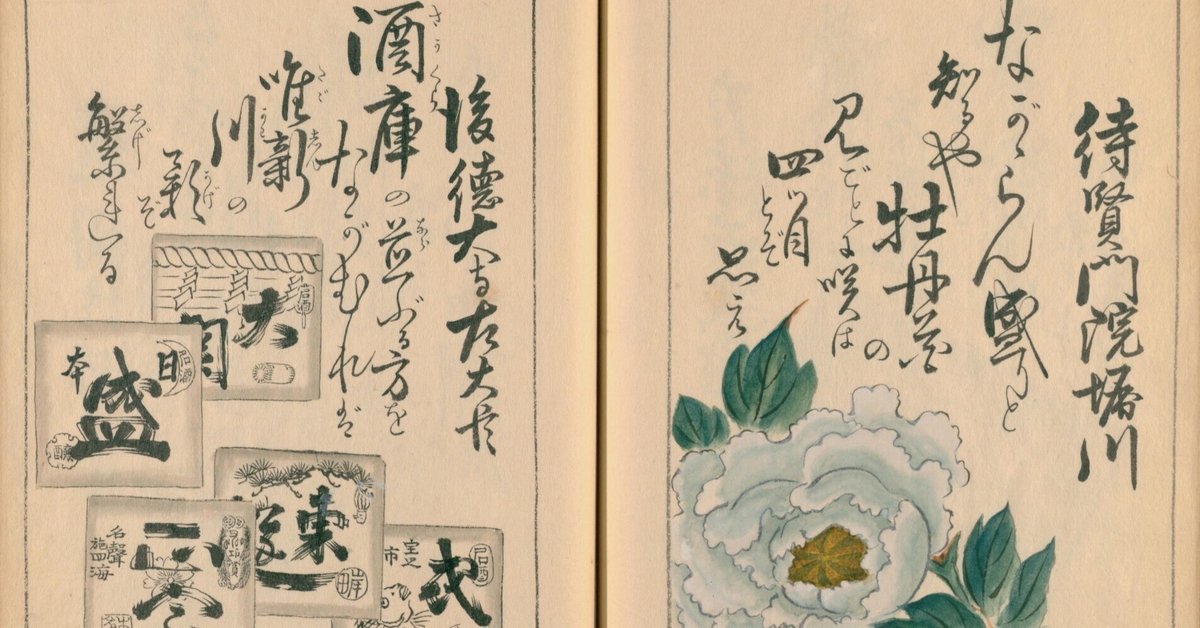 待賢門院堀川
ながゝらん盛りと
知るや
牡丹花の
見ごとに咲は
四ツ目とぞ
思へ
後徳大寺左大臣
酒庫の並ぶる方を
ながむれば
唯新
川の
影ぞ
繁れる
大関
日本盛
名聲施四海